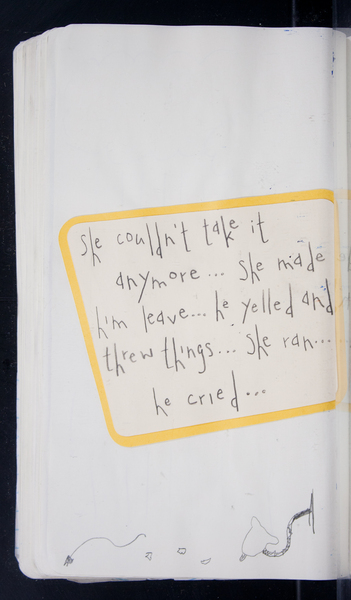 she couldn't take it
anymore... she made
him leave... he yelled and
threw things... she ran...
he cried...